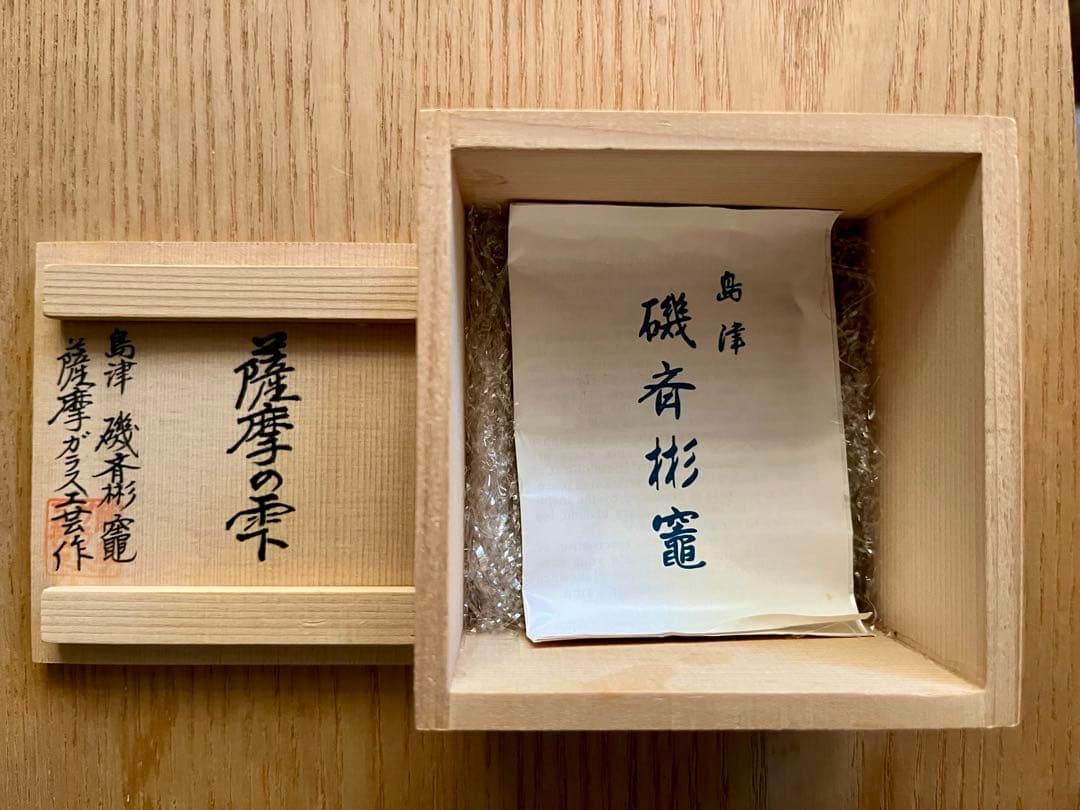 薩摩の雫
島津 磯斉彬竈
薩摩ガラス工芸作
島津
磯斉彬竈